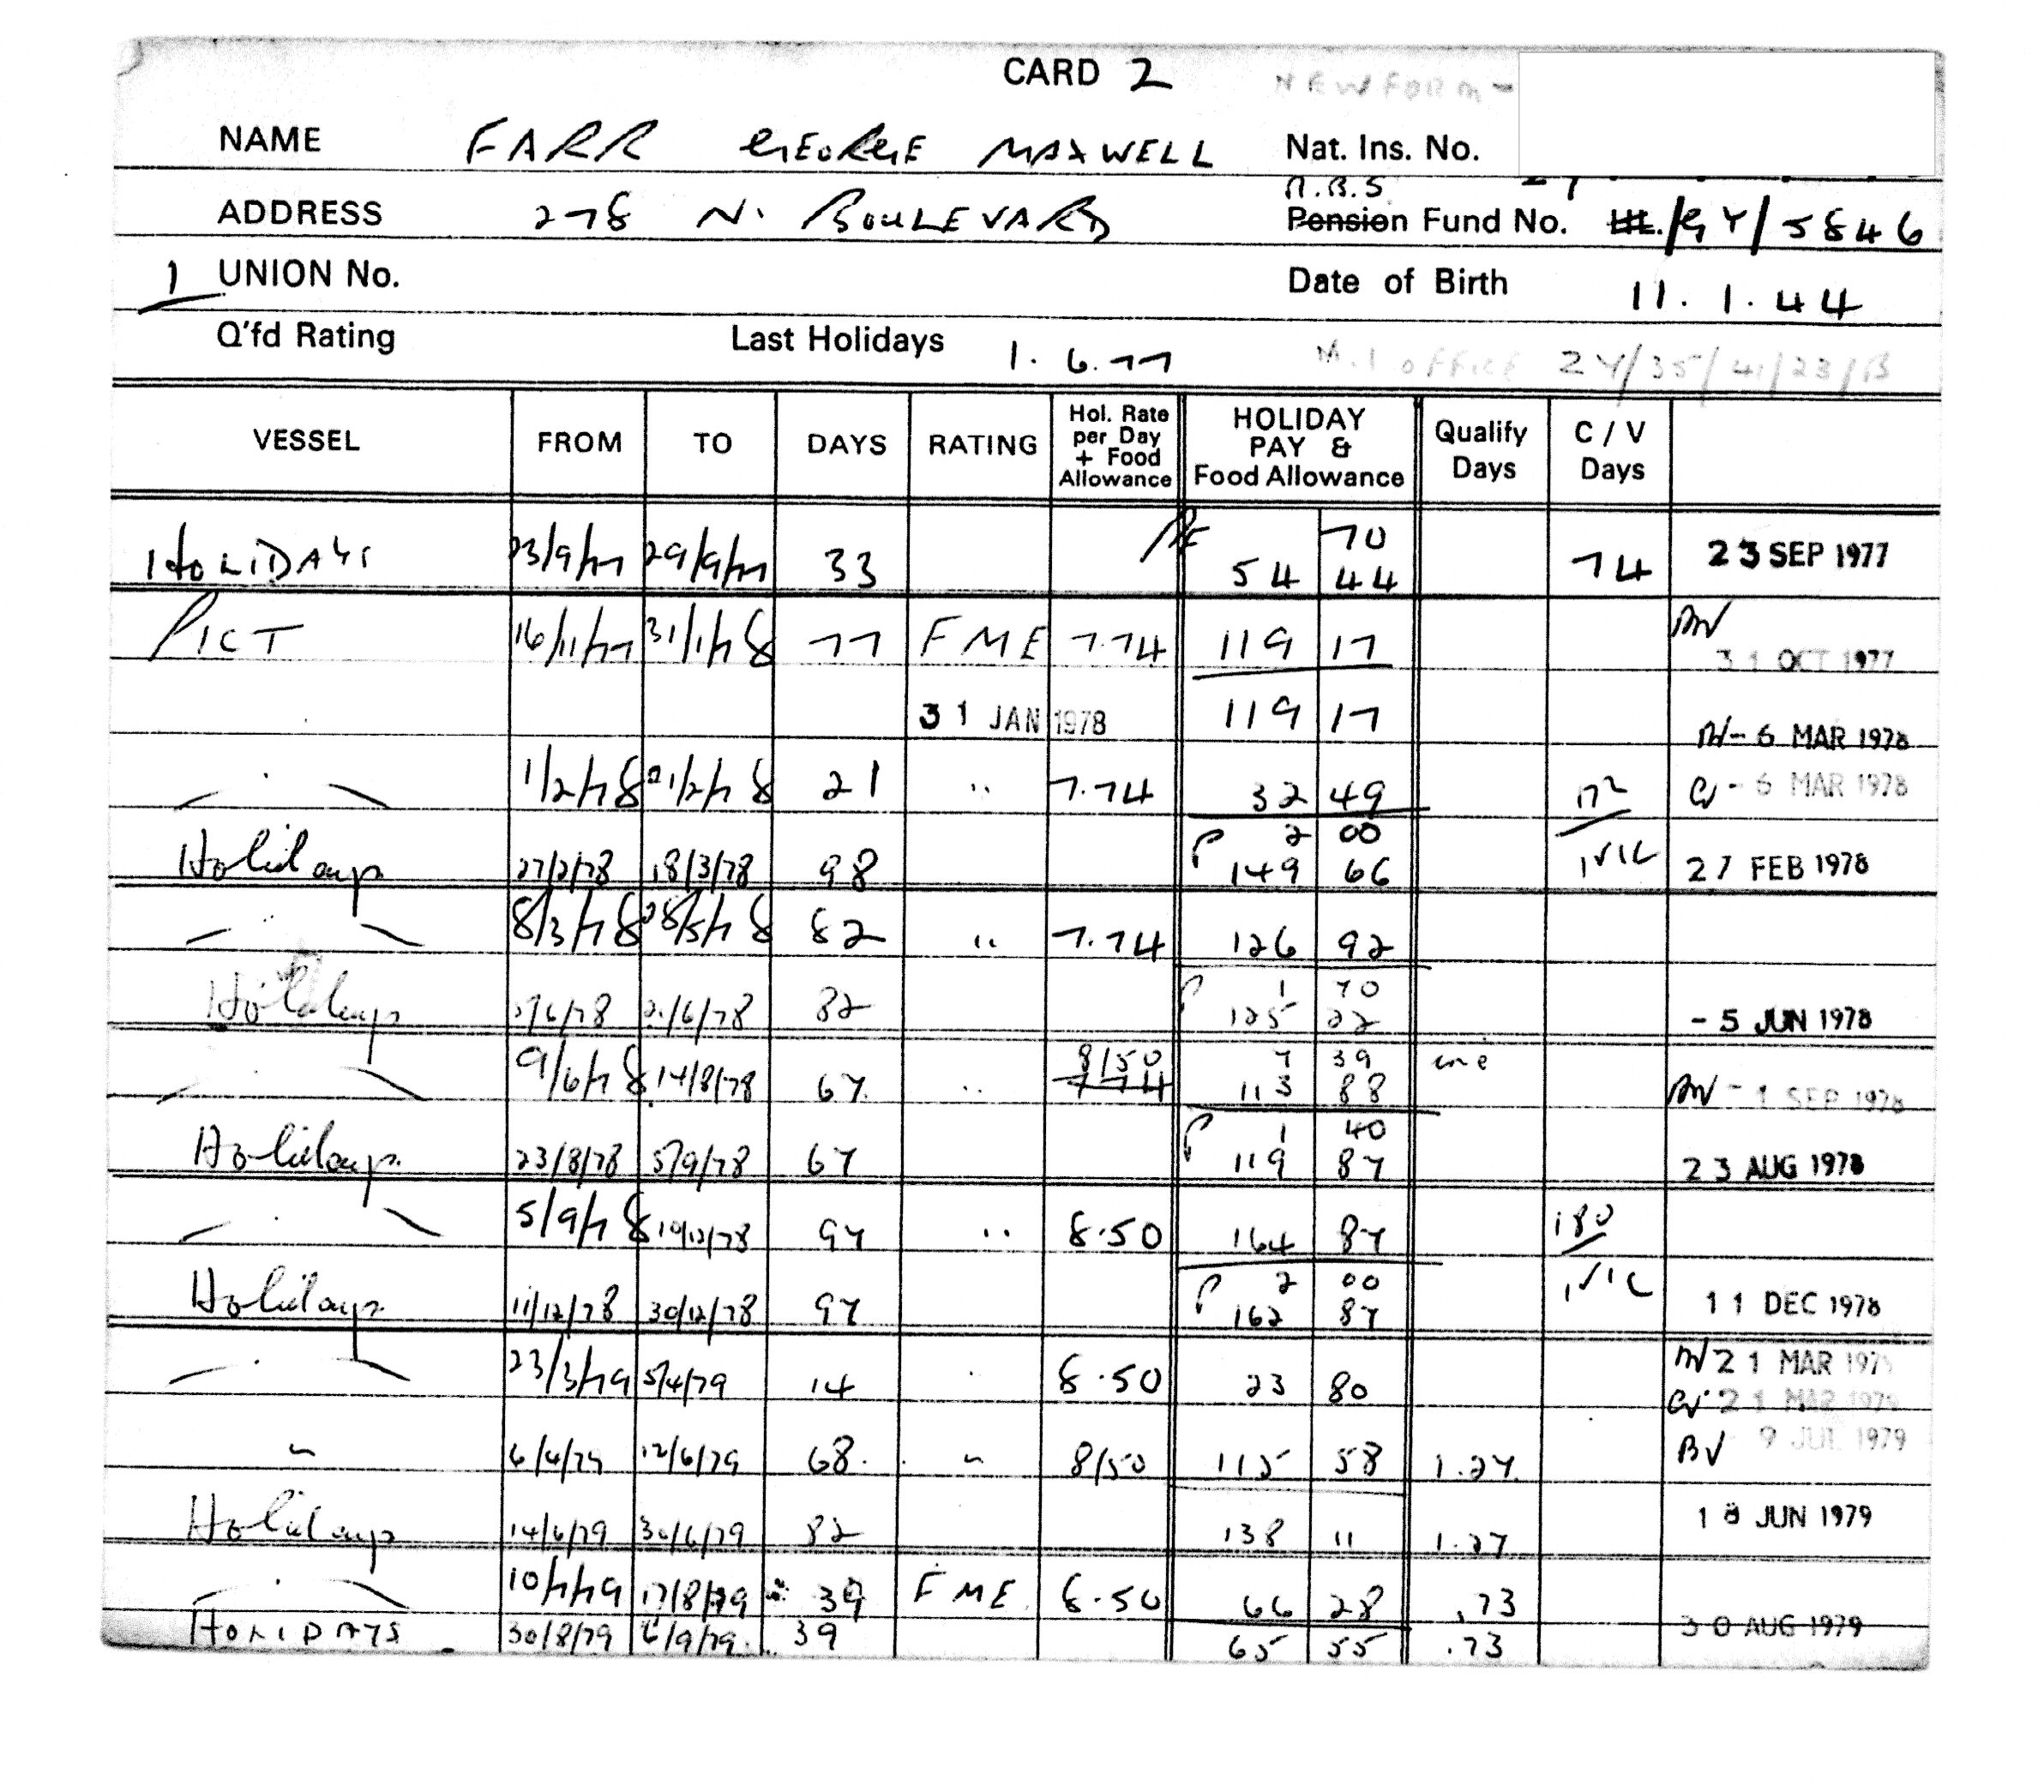 CARD 2 NEW FORM -
NAME FARR GEORGE MAXWELL Nat. Ins. No.
R.B.S.
ADDRESS 278 N. BOULEVARD Pension Fund No. H./GY/5846
1 UNION No. Date of Birth 11.1.44
Q'fd Rating Last Holidays 1.6.77 N.I OFFICE 24/35/41/23/B
VESSEL FROM TO DAYS RATING Hol. Rate per Day + Food Allowance HOLIDAY PAY & Food Allowance Qualify Days C / V Days
70
HOLIDAYS 23/9/77 29/9/77 33 54 44 74 23 SEP 1977
PICT 16/11/77 31/1/78 77 FME 7.74 119 17 31 OCT 1977
31 JAN 1978 119 17 - 6 MAR 1978
1/2/78 21/2/78 21 " 7.74 32 49 - 6 MAR 1978
2 00
Holidays 27/2/78 18/3/78 98 149 66 27 FEB 1978
8/3/78 28/5/78 82 " 7.74 126 92
1 70
Holidays 82 125 22 - 5 JUN 1978
8/50 7 39
9/6/78 14/8/78 67 " 7 74 113 88 - 1 SEP 1978
1 40
Holidays 23/8/78 5/9/78 67 119 87 23 AUG 1978
5/9/78 10/12/78 97 " 8.50 164 87 180
2 00
Holidays 11/12/78 30/12/78 97 162 87 11 DEC 1978
23/3/79 5/4/79 14 8.50 23 80 21 MAR 1979
21 MAR 1979
" 6/4/79 12/6/79 68 " 8/50 115 58 1.27 BV 9 JUL 1979
Holidays 14/6/79 30/6/79 82 138 11 1.27 18 JUN 1979
10/7/79 17/8/79 39 FME 8.50 66 28 .73
HOLIDAYS 30/8/79 6/9/79 39 65 55 .73 30 AUG 1979